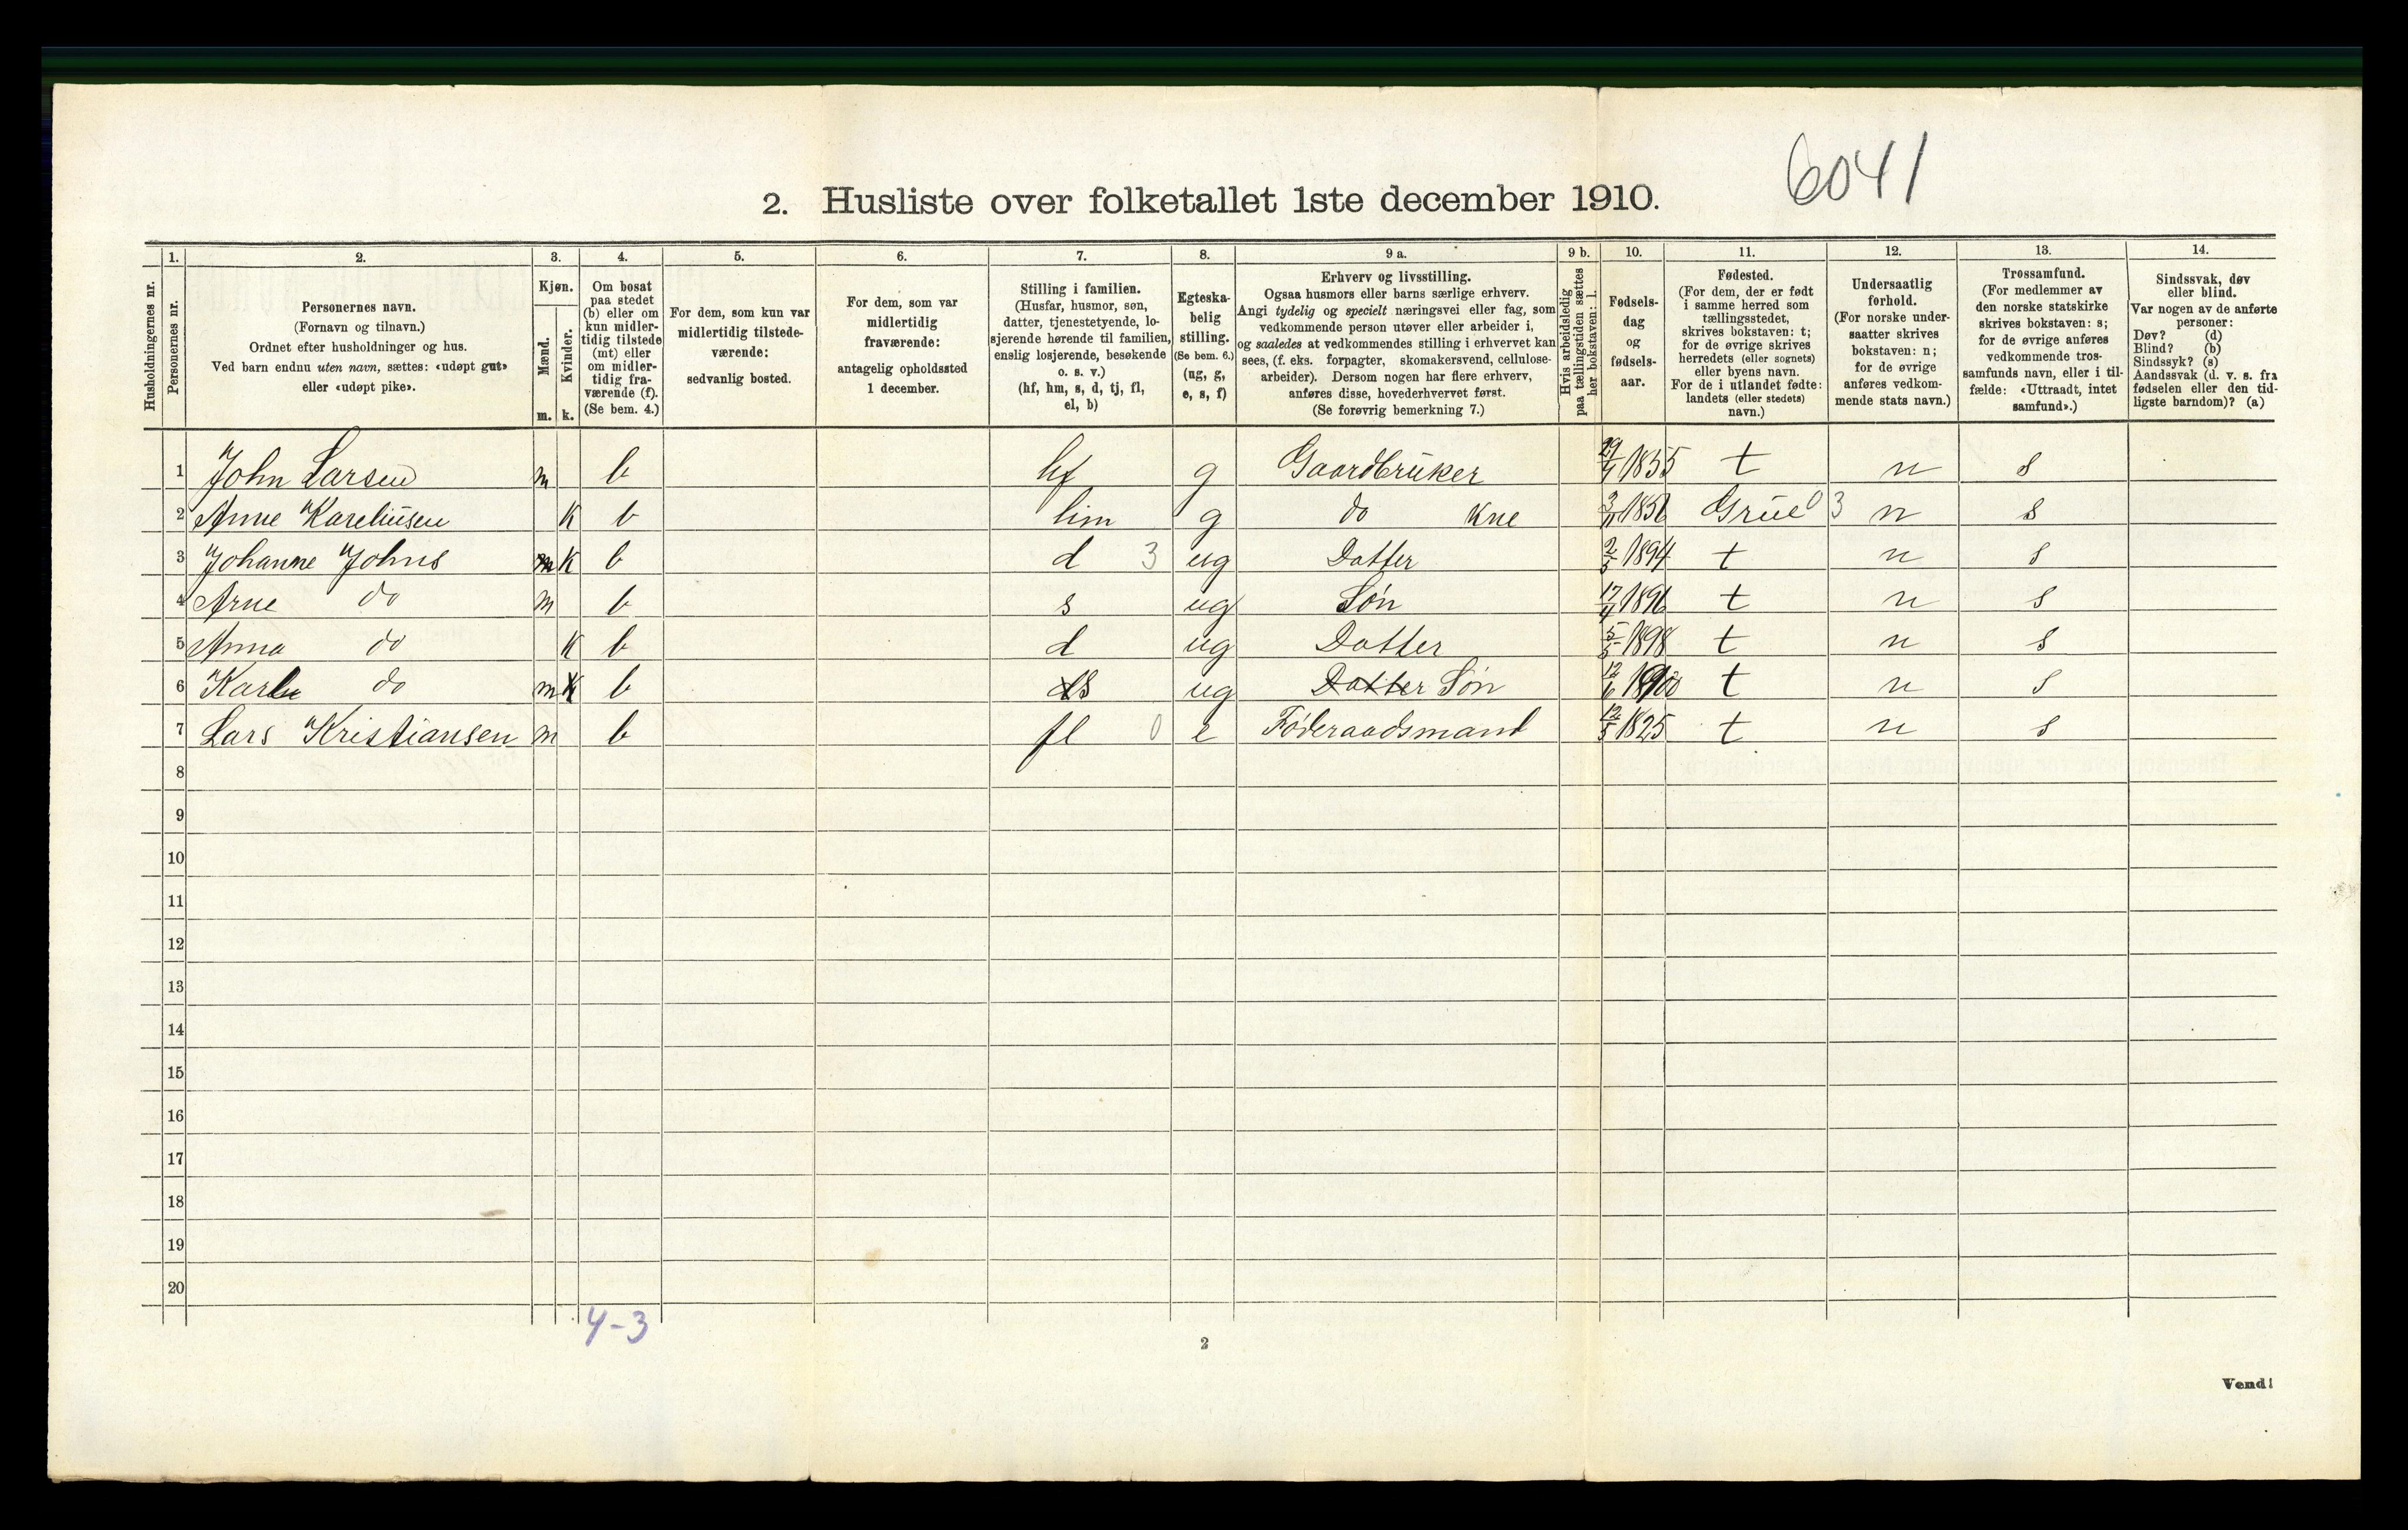 6041
2. Husliste over folketallet 1ste december 1910.
Husholdningernes nr.
1.
Personernes nr.
2.
Personernes navn.
(Fornavn og tilnavn.)
Ordnet efter husholdninger og hus.
Ved barn endnu uten navn, sættes: «udøpt gut»
eller «udøpt pike».
3.
Kjøn.
Mænd.
Kvinder.
m. k.
4.
Om bosat
paa stedet
(b) eller om
kun midler-
tidig tilstede
(mt) eller
om midler-
tidig fra-
værende (f).
(Se bem. 4.)
5.
For dem, som kun var
midlertidig tilstede-
værende:
sedvanlig bosted.
6.
For dem, som var
midlertidig
fraværende:
antagelig opholdssted
1 december.
7.
Stilling i familien.
(Husfar, husmor, søn,
datter, tjenestetyende, lo-
sjerende hørende til familien,
enslig losjerende, besøkende
o. s. v.)
(hf, hm, s, d, tj, fl,
el, b)
8.
Egteska-
belig
stilling.
(Se bem. 6.)
(ug, g,
e, s, f)
9 a.
Erhverv og livsstilling.
Ogsaa husmors eller barns særlige erhverv.
Angi tydelig og specielt næringsvei eller fag, som
vedkommende person utøver eller arbeider i,
og saaledes at vedkommendes stilling i erhvervet kan
sees, (f. eks. forpagter, skomakersvend, cellulose-
arbeider). Dersom nogen har flere erhverv,
anføres disse, hovederhvervet først.
(Se forøvrig bemerkning 7.)
9 b.
Hvis arbeidsledig
paa tællingstiden sættes
her bokstaven: l.
10.
Fødsels-
dag
og
fødsels-
aar.
11.
Fødested.
(For dem, der er født
i samme herred som
tællingsstedet,
skrives bokstaven: t;
for de øvrige skrives
herredets (eller sognets)
eller byens navn.
For de i utlandet fødte:
landets (eller stedets)
navn.)
12.
Undersaatlig
forhold.
(For norske under-
saatter skrives
bokstaven: n;
for de øvrige
anføres vedkom-
mende stats navn.)
13.
Trossamfund.
(For medlemmer av
den norske statskirke
skrives bokstaven: s;
for de øvrige anføres
vedkommende tros-
samfunds navn, eller i til-
fælde: «Uttraadt, intet
samfund».)
14.
Sindssvak, døv
eller blind.
Var nogen av de anførte
personer:
Døv? (d)
Blind? (b)
Sindssyk? (s)
Aandssvak (d. v. s. fra
fødselen eller den tid-
ligste barndom)? (a)
1 John Larsen m b hf g Gaardbruker 29/4 1855 t n s
2 Anne Kareliusen k b hm g do kne 3/11 1856 Grue 03 n s
3 Johanne Johns k b d 3 ug Datter 2/5 1894 t n s
4 Arne do m b s ug Søn 17/4 1896 t n s
5 Anna do k b d ug Datter 5/5 1898 t n s
6 Karl do m k b d s ug Datter Søn 12/6 1900 t n s
7 Lars Kristiansen m b fl 0 e Føderaadsmand 12/5 1825 t n s
8
9
10
11
12
13
14
15
16
17
18
19
20
4-3
2
Vend!